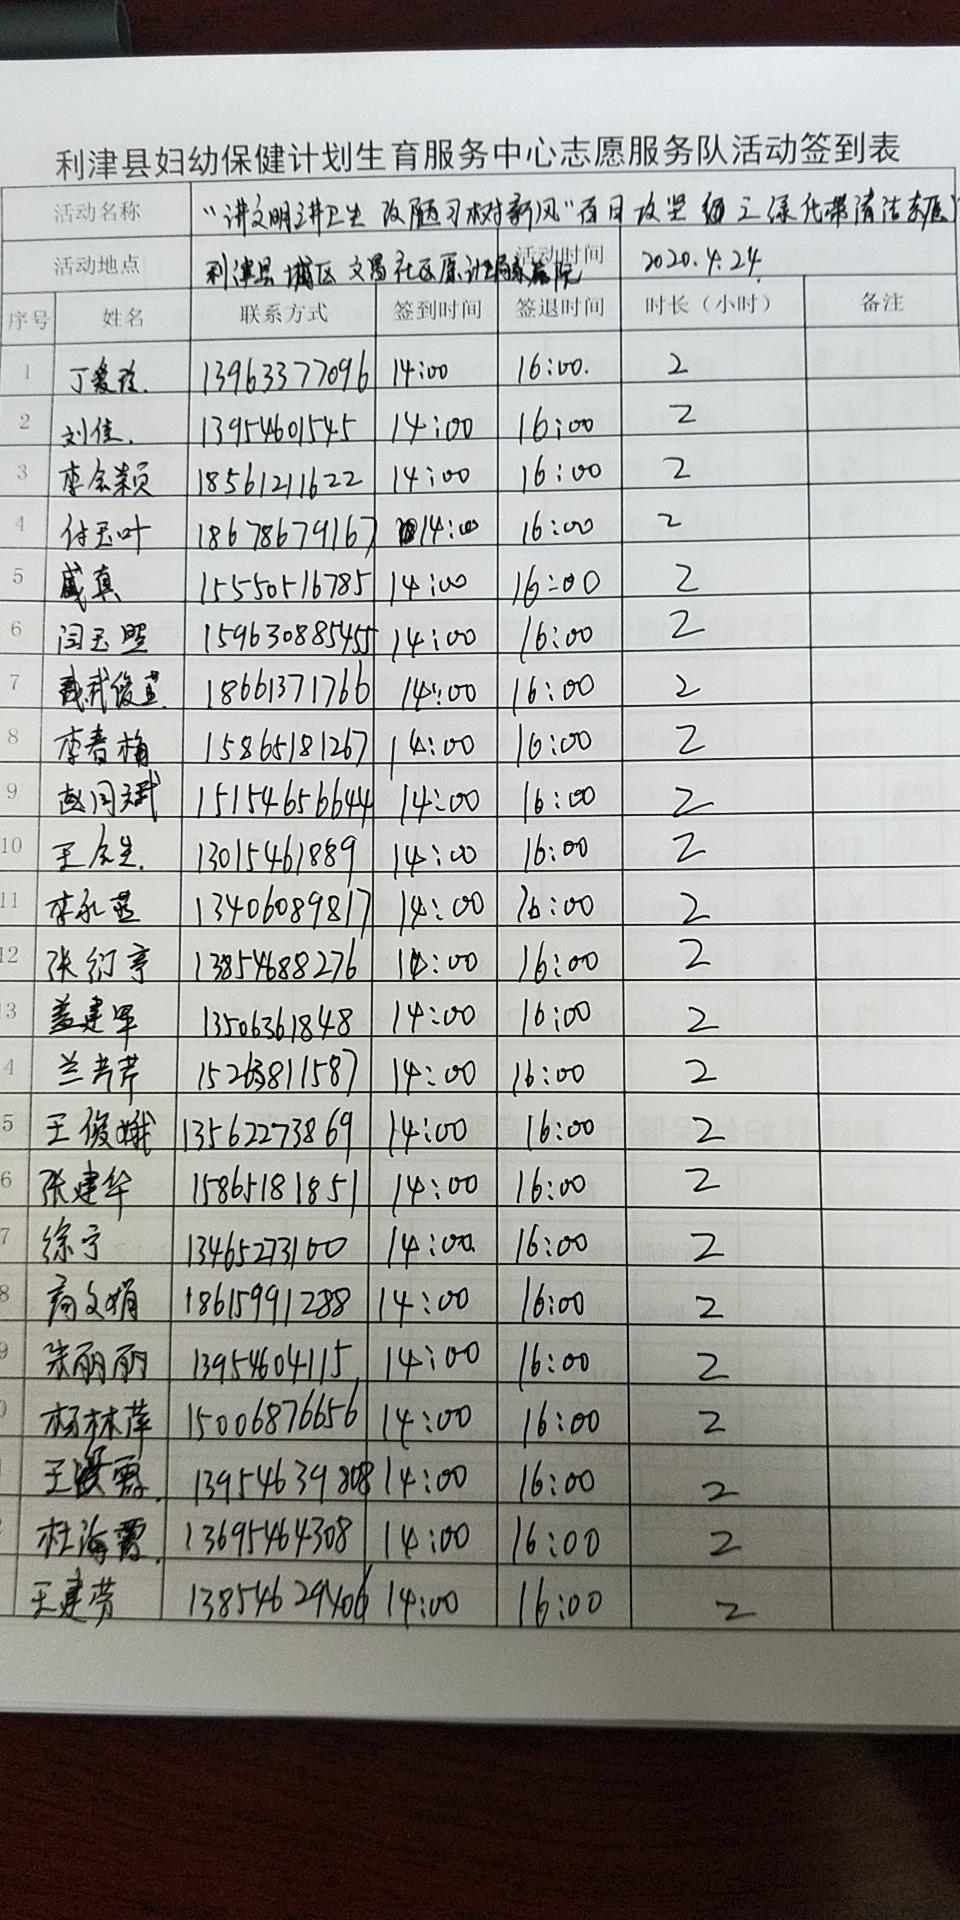 利津县妇幼保健计划生育服务中心志愿服务队活动签到表
活动名称 "讲文明讲卫生 改陋习树新风"百日攻坚 绿化带清洁志愿
活动地点 利津县城区文昌社区原计生局家属院 活动时间 2020.4.24
序号 姓名 联系方式 签到时间 签退时间 时长（小时） 备注
1 丁爱 13963377096 14:00 16:00. 2
2 刘佳. 13954601545 14:00 16:00 2
3 李会颖 18561211622 14:00 16:00 2
4 付玉叶 18678679167 14:00 16:00 2
5 戚真 15550516785 14:00 16:00 2
6 闫玉照 14:00 16:00 2
7 18661371766 14:00 16:00 2
8 李春梅 15865181267 14:00 16:00 2
9 赵同斌 15154656644 14:00 16:00 2
10 王 13015461889 14:00 16:00 2
11 李永 13406089817 14:00 16:00 2
12 张衍亭 13854688276 14:00 16:00 2
13 盖建军 13506361848 14:00 16:00 2
4 兰芳芹 15263811587 14:00 16:00 2
5 王俊娥 13562273869 14:00 16:00 2
6 张建华 15865181851 14:00 16:00 2
7 徐宁 13465273100 14:00 16:00 2
8 高文娟 18615991288 14:00 16:00 2
9 朱丽丽 13954604115 14:00 16:00 2
0 杨林萍 15006876656 14:00 16:00 2
王 霞. 13954639808 14:00 16:00 2
杜海霞. 13695464308 14:00 16:00 2
王建芳 13854629406 14:00 16:00 2